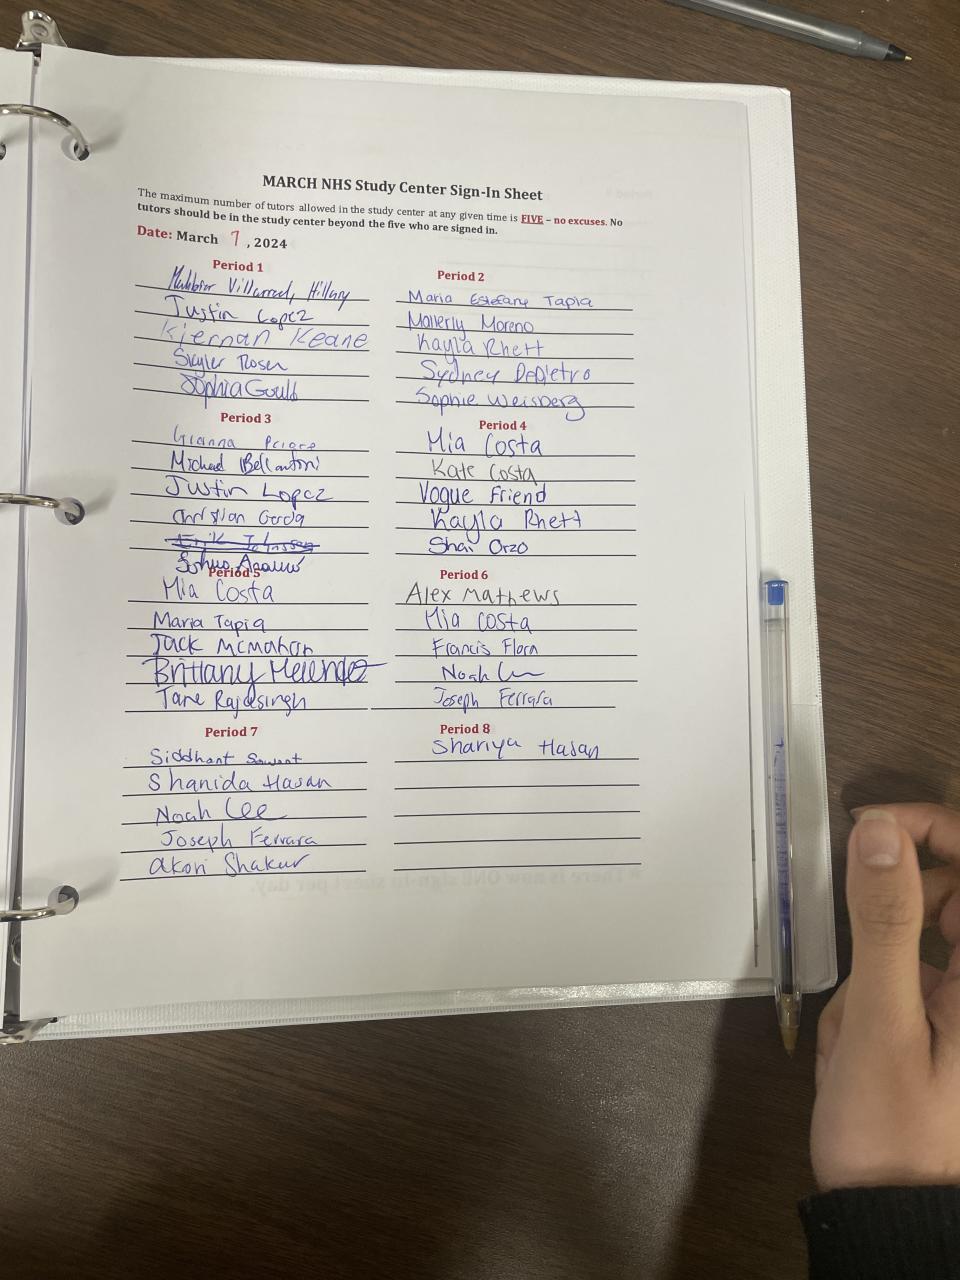 MARCH NHS Study Center Sign-In Sheet
The maximum number of tutors allowed in the study center at any given time is FIVE – no excuses. No
tutors should be in the study center beyond the five who are signed in.
Date: March 7, 2024
Period 1
Villarreal, Hillary
Justin Lopez
Kiernan Keane
Skyler Rosen
Sophia Gould
Period 2
Maria Estefany Tapia
Mallerly Moreno
Kayla Rhett
Sydney DePietro
Sophie Weisberg
Period 3
Gianna
Michael Bellantoni
Justin Lopez
Christian
Erik
Period 4
Mia Costa
Kate Costa
Vogue Friend
Kayla Rhett
Shai Orzo
Period 5
Mia Costa
Maria Tapia
Jack McMahon
Brittany Melendez
Jane Rajdesingh
Period 6
Alex Mathews
Mia Costa
Francis Flora
Noah
Joseph Ferrara
Period 7
Siddhant Sawant
Shanida Hasan
Noah Lee
Joseph Ferrara
Akori Shakur
Period 8
Shariya Hasan